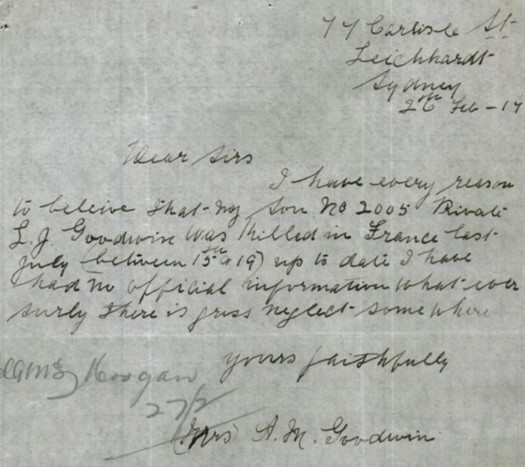 77 Carlisle St
Leichhardt
Sydney
26th Feb - 17
Dear Sirs
I have every reason
to beleive that my Son No 2005 Private
L. J. Goodwin was killed in France last
July (between 15th & 19) up to date I have
had no official information what ever
surly there is gross neglect somewhere
yours faithfully
27/2
(Mrs) A. M. Goodwin